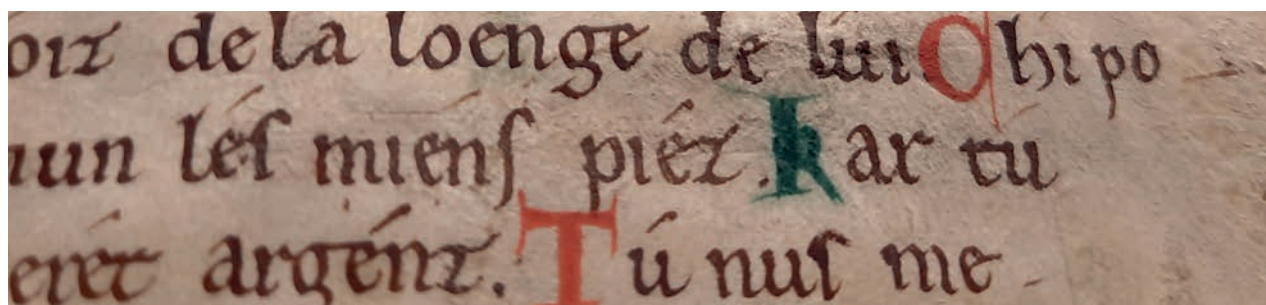 oiz de la loenge de lui Chi po
mun lés miens piéz. kar tú
eret argénz. Tú nus me-